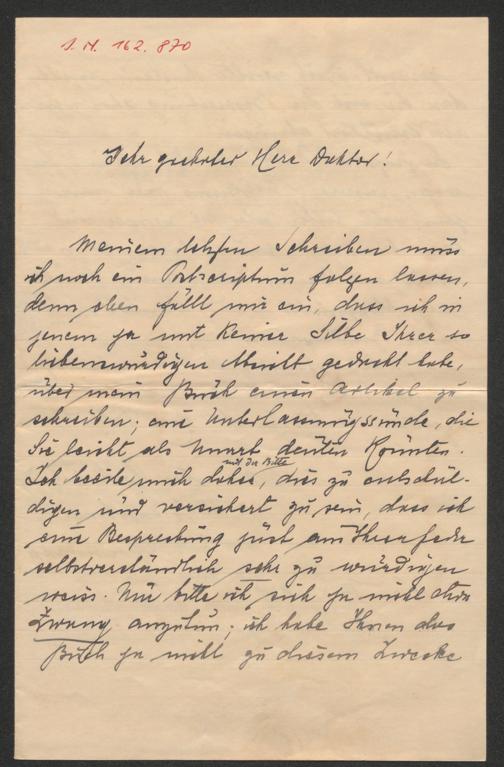 I. N. 162.870
Sehr geehrter Herr Doktor!
Meinem letzten Schreiben muss
ich noch ein Postscriptum folgen lassen,
denn eben fällt mir ein, dass ich in
jenem ja mit keiner Silbe Ihrer so
liebenswürdigen Absicht gedacht habe,
über mein Buch einen Artikel zu
schreiben; eine Unterlassungssünde, die
Sie leicht als Unart deuten könnten.
mit der Bitte
Ich beeile mich daher, dies zu entschul-
digen und versichert zu sein, dass ich
eine Besprechung just aus Ihrer Feder
selbstverständlich sehr zu würdigen
weiss. Nur bitte ich, sich ja nicht etwa
Zwang anzutun; ich habe Ihnen das
Buch ja nicht zu diesem Zwecke